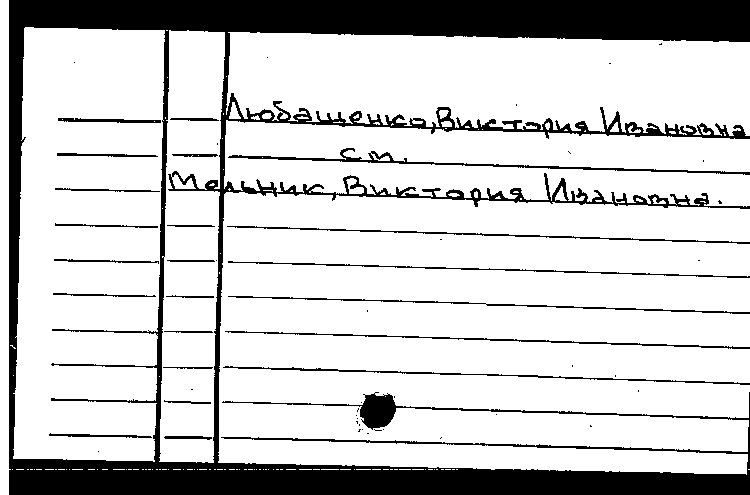 Любащенко, Виктория Ивановна
см.
Мельник, Виктория Ивановна.